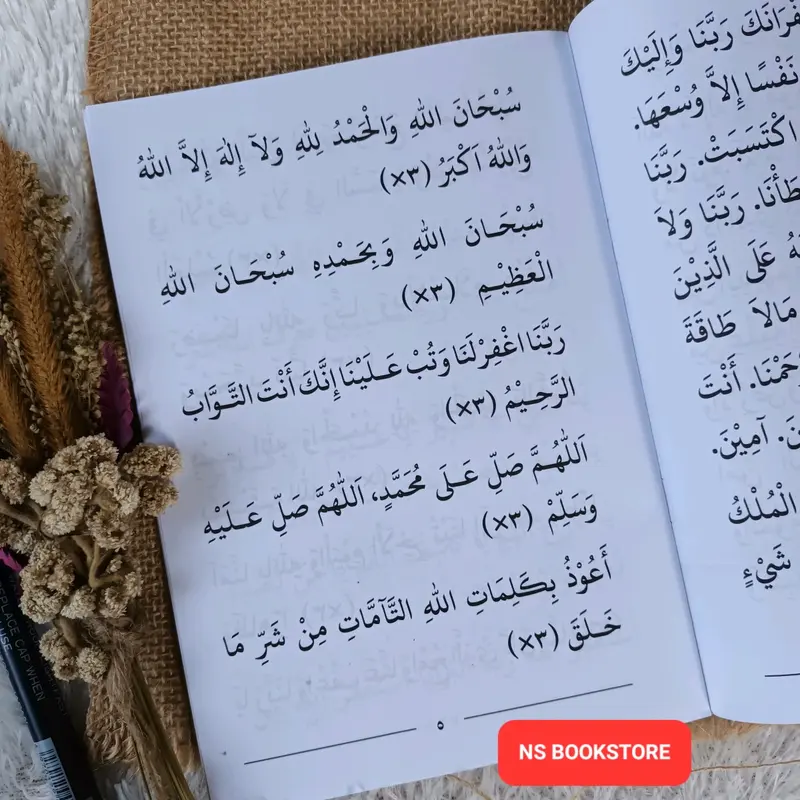 فْرَانَكَ رَبَّنَا وَإِلَيْكَ
نَفْسًا إِلاَّ وُسْعَهَا.
اكْتَسَبَتْ. رَبَّنَا
طَأْنَا. رَبَّنَا وَلاَ
هُ عَلَى الَّذِيْنَ
مَالاَ طَاقَةَ
حَمْنَا. أَنْتَ
نَ. آمِيْنَ.
الْمُلْكُ
شَيْءٍ
سُبْحَانَ اللهِ وَالْحَمْدُ لِلهِ وَلَآ إِلٰهَ إِلاَّ اللهُ
وَاللهُ اَكْبَرُ (٣×)
سُبْحَانَ اللهِ وَبِحَمْدِهِ سُبْحَانَ اللهِ
الْعَظِيْمِ (٣×)
رَبَّنَا اغْفِرْلَنَا وَتُبْ عَلَيْنَا إِنَّكَ أَنْتَ التَّوَّابُ
الرَّحِيْمُ (٣×)
اَللّٰهُمَّ صَلِّ عَلَى مُحَمَّدٍ، اَللّٰهُمَّ صَلِّ عَلَيْهِ
وَسَلِّمْ (٣×)
أَعُوْذُ بِكَلِمَاتِ اللهِ التَّآمَّاتِ مِنْ شَرِّ مَا
خَلَقَ (٣×)
٥
DISPLACE CAP WHEN
USE
NS BOOKSTORE